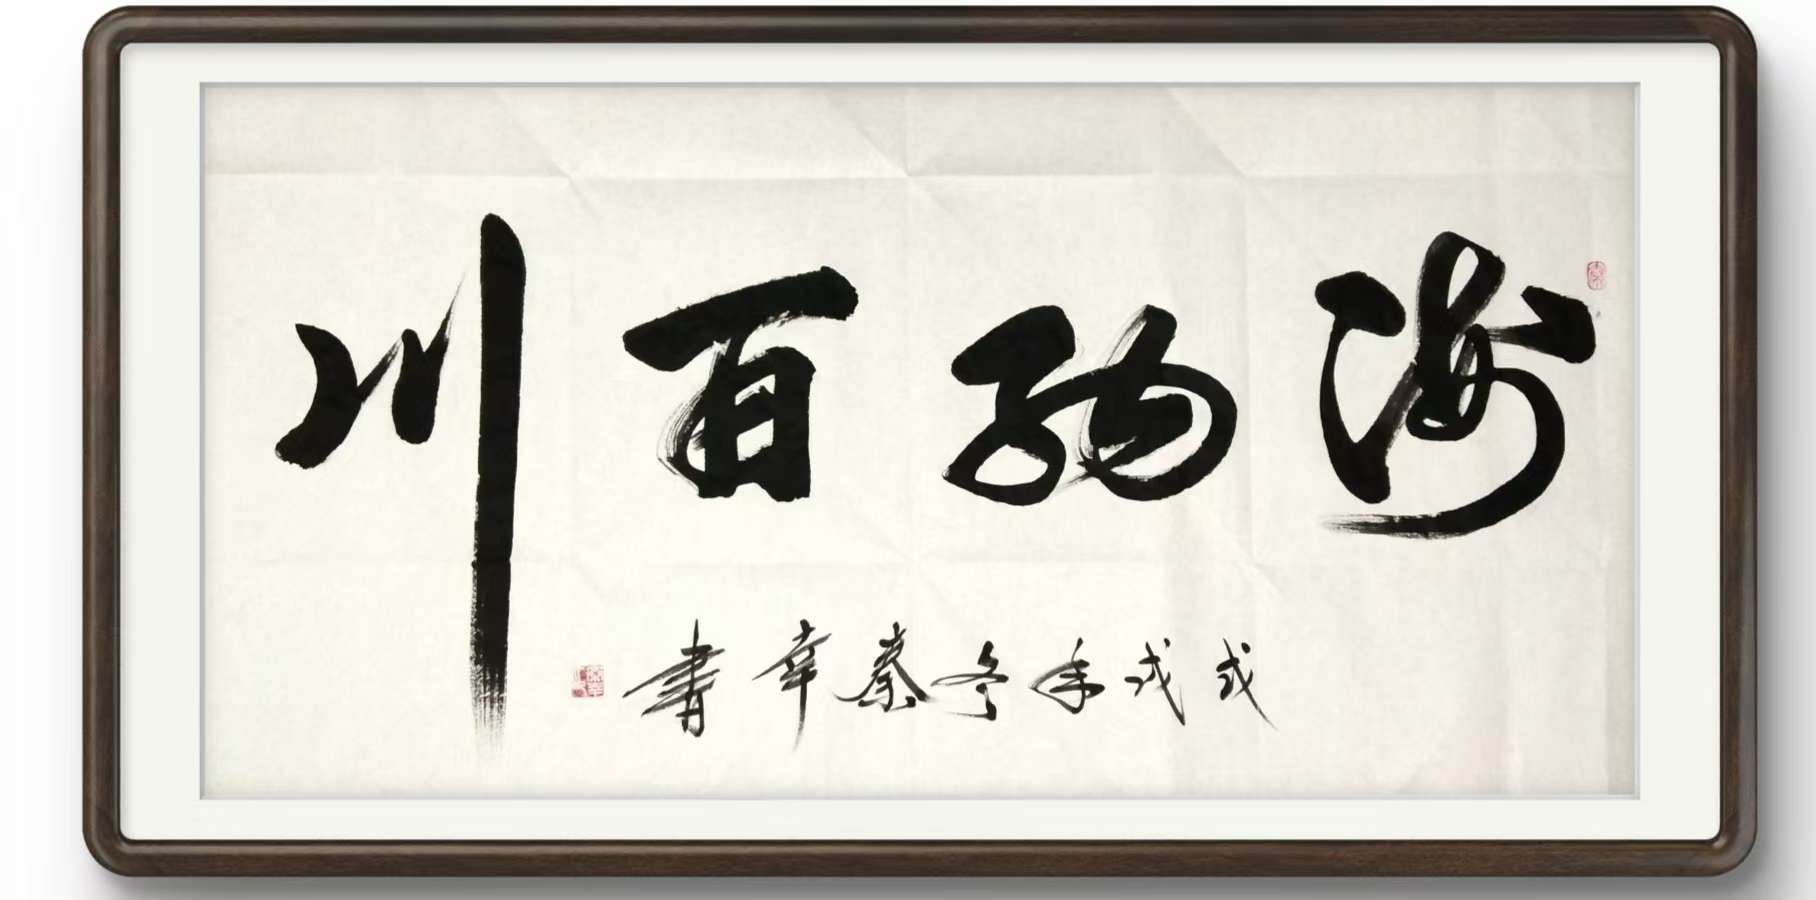 海纳百川
戊戌年冬秦幸书